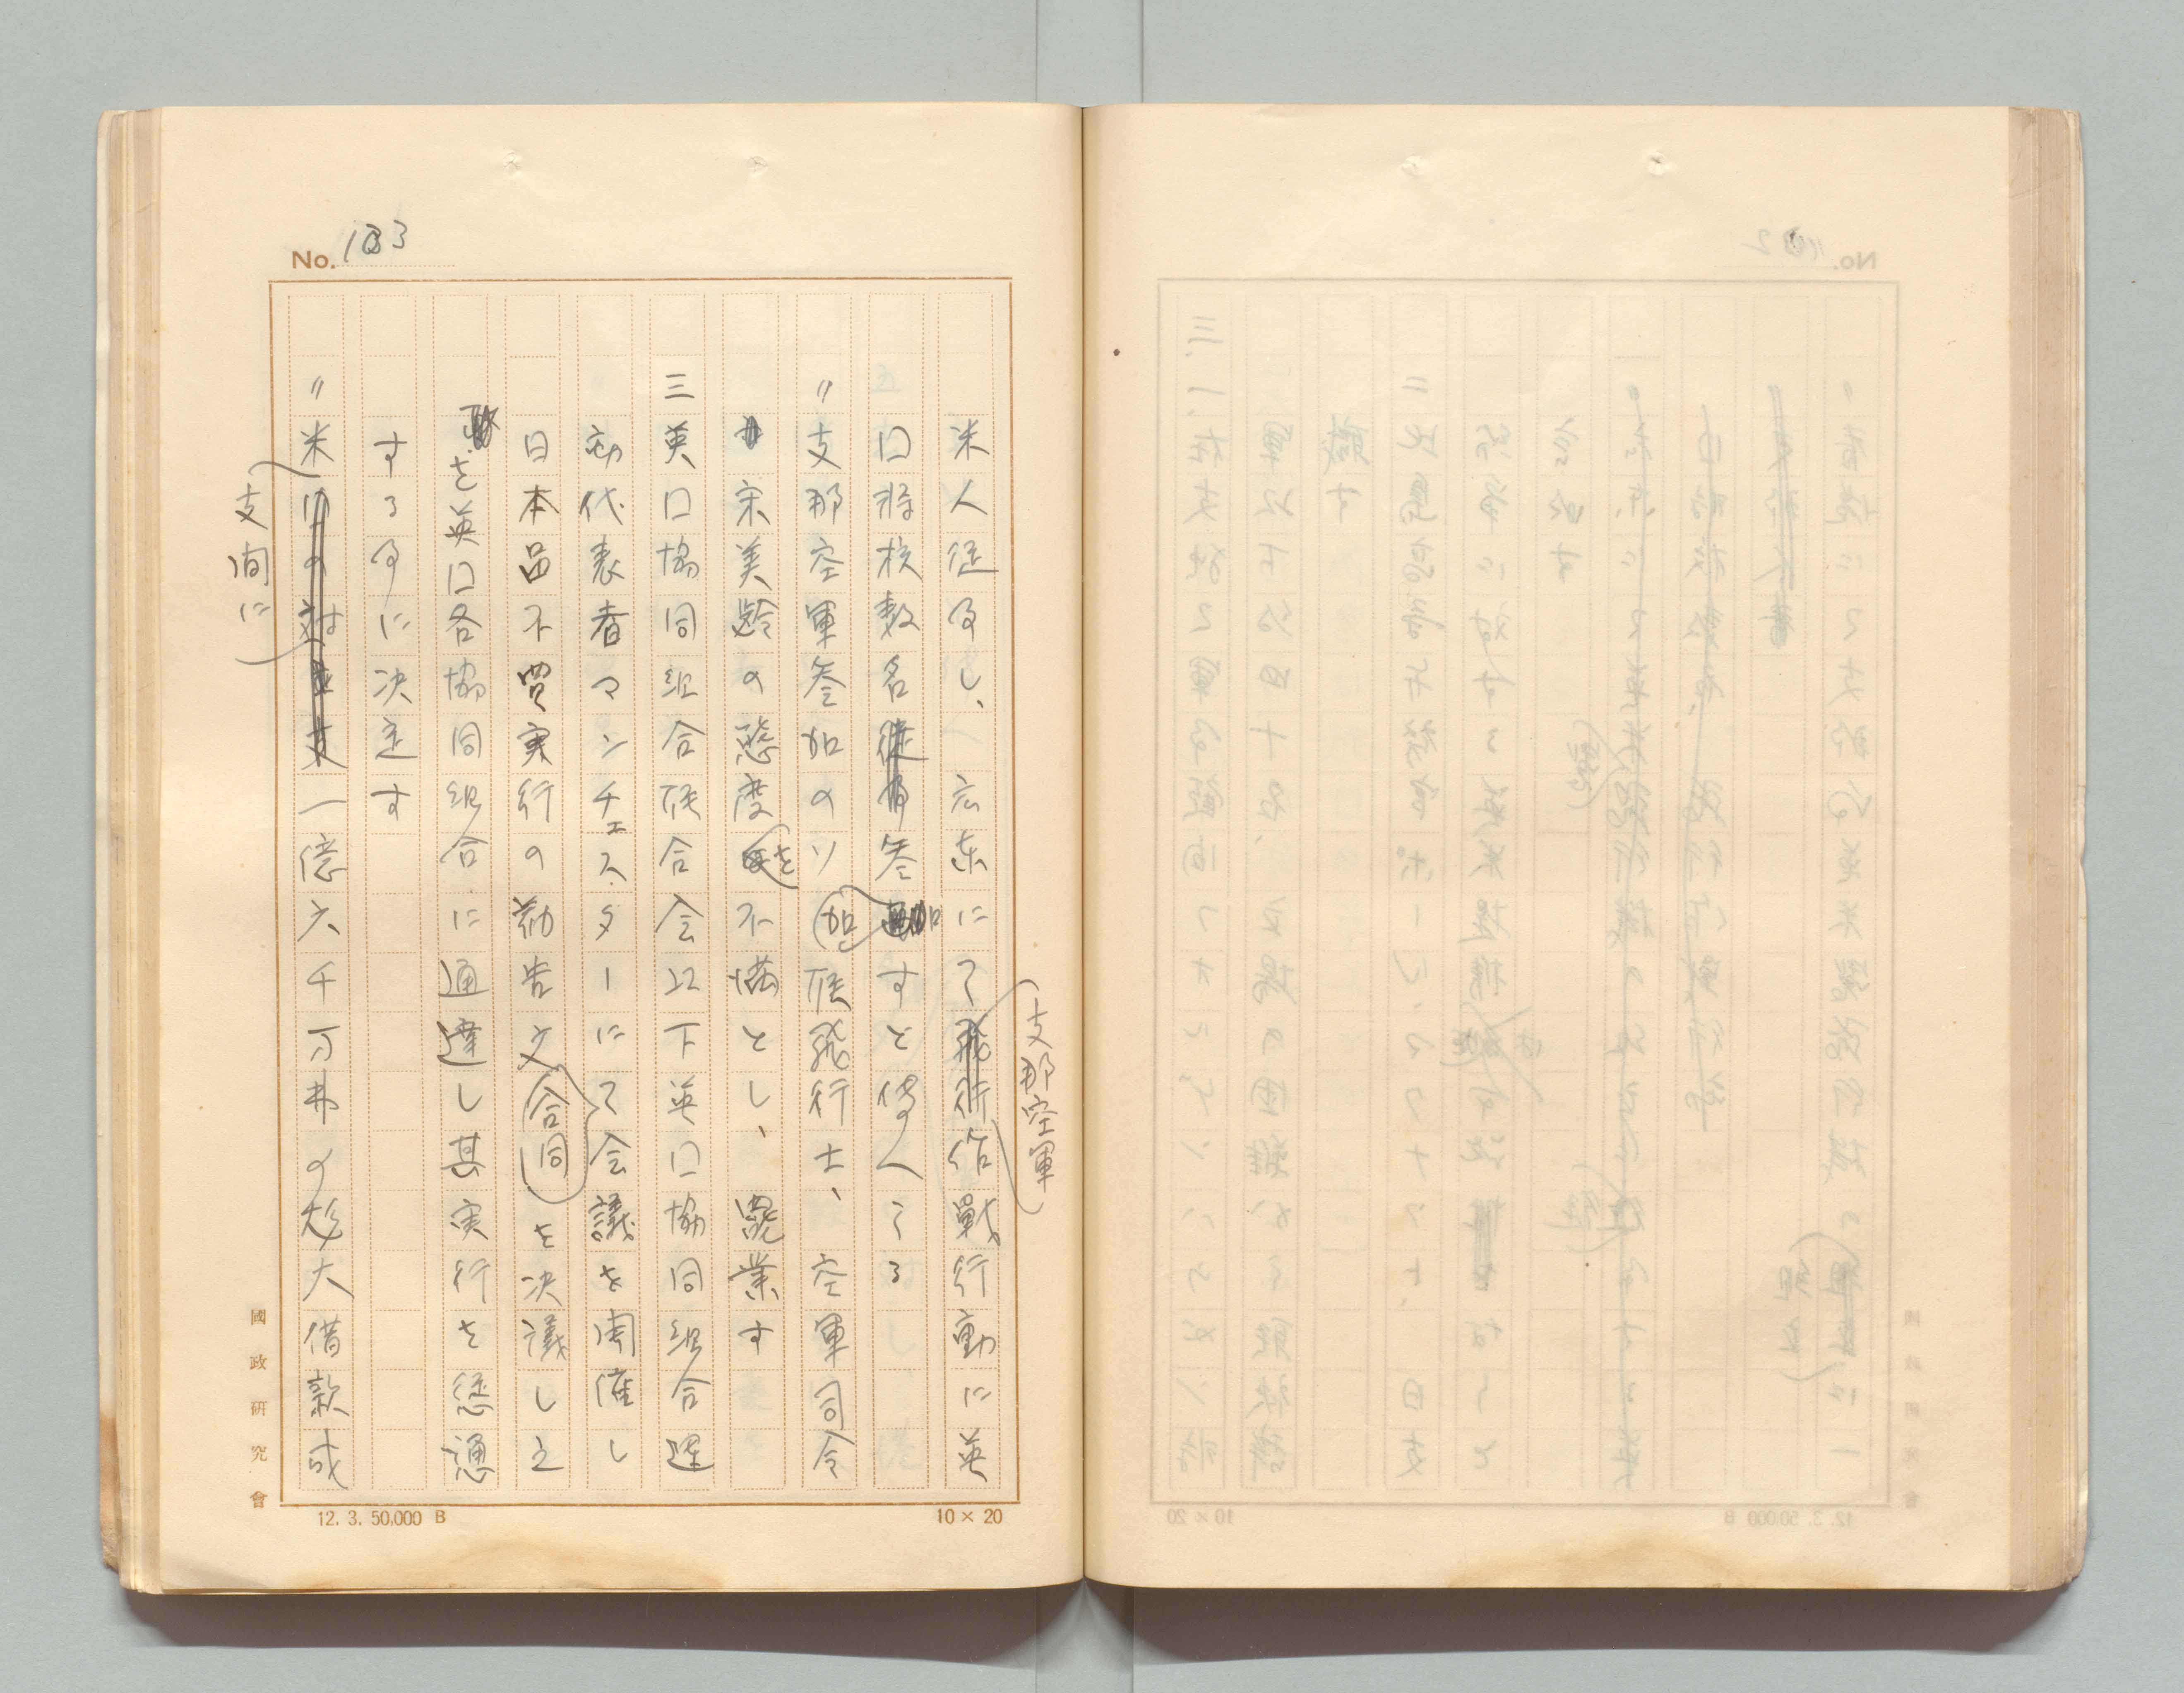 No. 133
米人従事し、広東にて支那空軍作戦行動に英
口将校数名参加すと伝へらる
〃支那空軍参加のソ联飛行士、空軍司令
宋美齢の態度を不満とし、罷業す
三英口協同組合联合会以下英口協同組合運
动代表者マンチェスターにて会議を開催し
日本品不買実行の勧告文合同を決議し之
を英口各協同組合に通達し其実行を慫慂
する事に決定す
〃米支間に一億六千万弗の尨大借款成
國政研究會
12. 3. 50,000 B
10×20